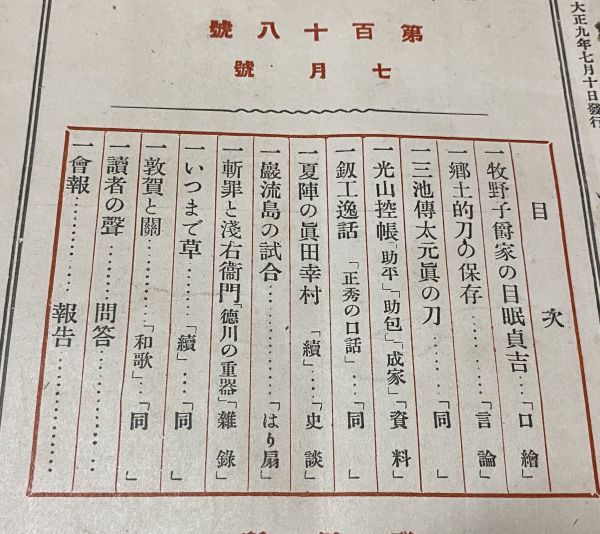 大正九年七月十日發行
第百十八號
七月號
目次
一牧野子爵家の目眠貞吉……「口繪」
一郷土的刀の保存…………「言論」
一三池傳太元眞の刀……「同」
一光山控帳「助平」「助包」「成家」「資料」
一釼工逸話「正秀の口話」…「同」
一夏陣の眞田幸村「續」…「史談」
一巖流島の試合……………「はり扇」
一斬罪と淺右衞門「德川の重器」「雜錄」
一いつまで草………「續」…「同」
一敦賀と關…………「和歌」…「同」
一讀者の聲………問答…………
一會報……………報告…………